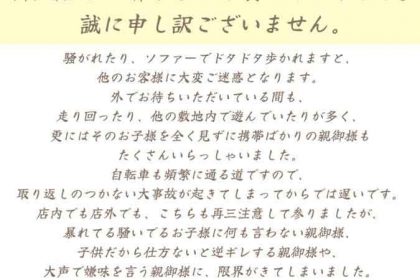 誠に申し訳ございません。
騒がれたり、ソファーでドタドタ歩かれますと、
他のお客様に大変ご迷惑となります。
外でお待ちいただいている間も、
走り回ったり、他の敷地内で遊んでいたりが多く、
更にはそのお子様を全く見ずに携帯ばかりの親御様も
たくさんいらっしゃいました。
自転車も頻繁に通る道ですので、
取り返しのつかない大事故が起きてしまってからでは遅いです。
店内でも店外でも、こちらも再三注意して参りましたが、
暴れてる騒いでるお子様に何も言わない親御様、
子供だから仕方ないと逆ギレする親御様や、
大声で嫌味を言う親御様に、限界がきてしまいました。